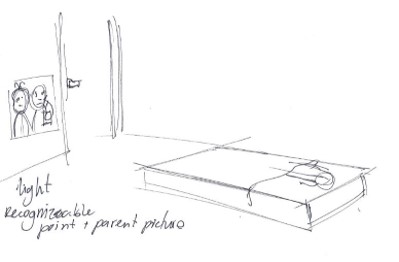 light
recognizeable
point + parent picture